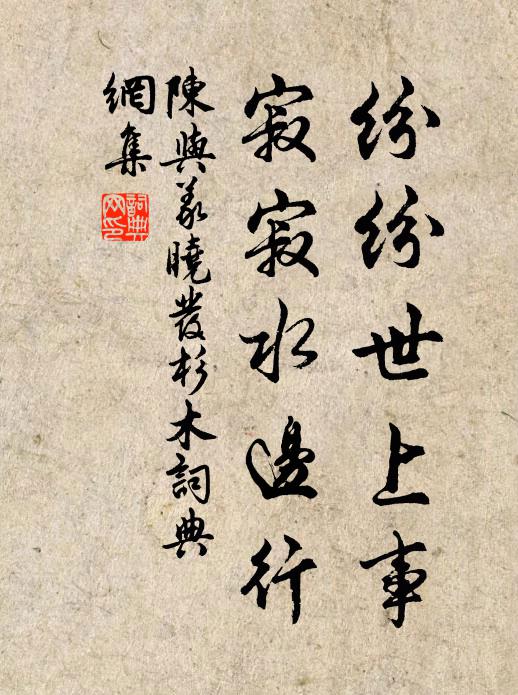 紛紛世上事
寂寂水邊行
陳與義曉發杉木詞典
網集
詞典網印